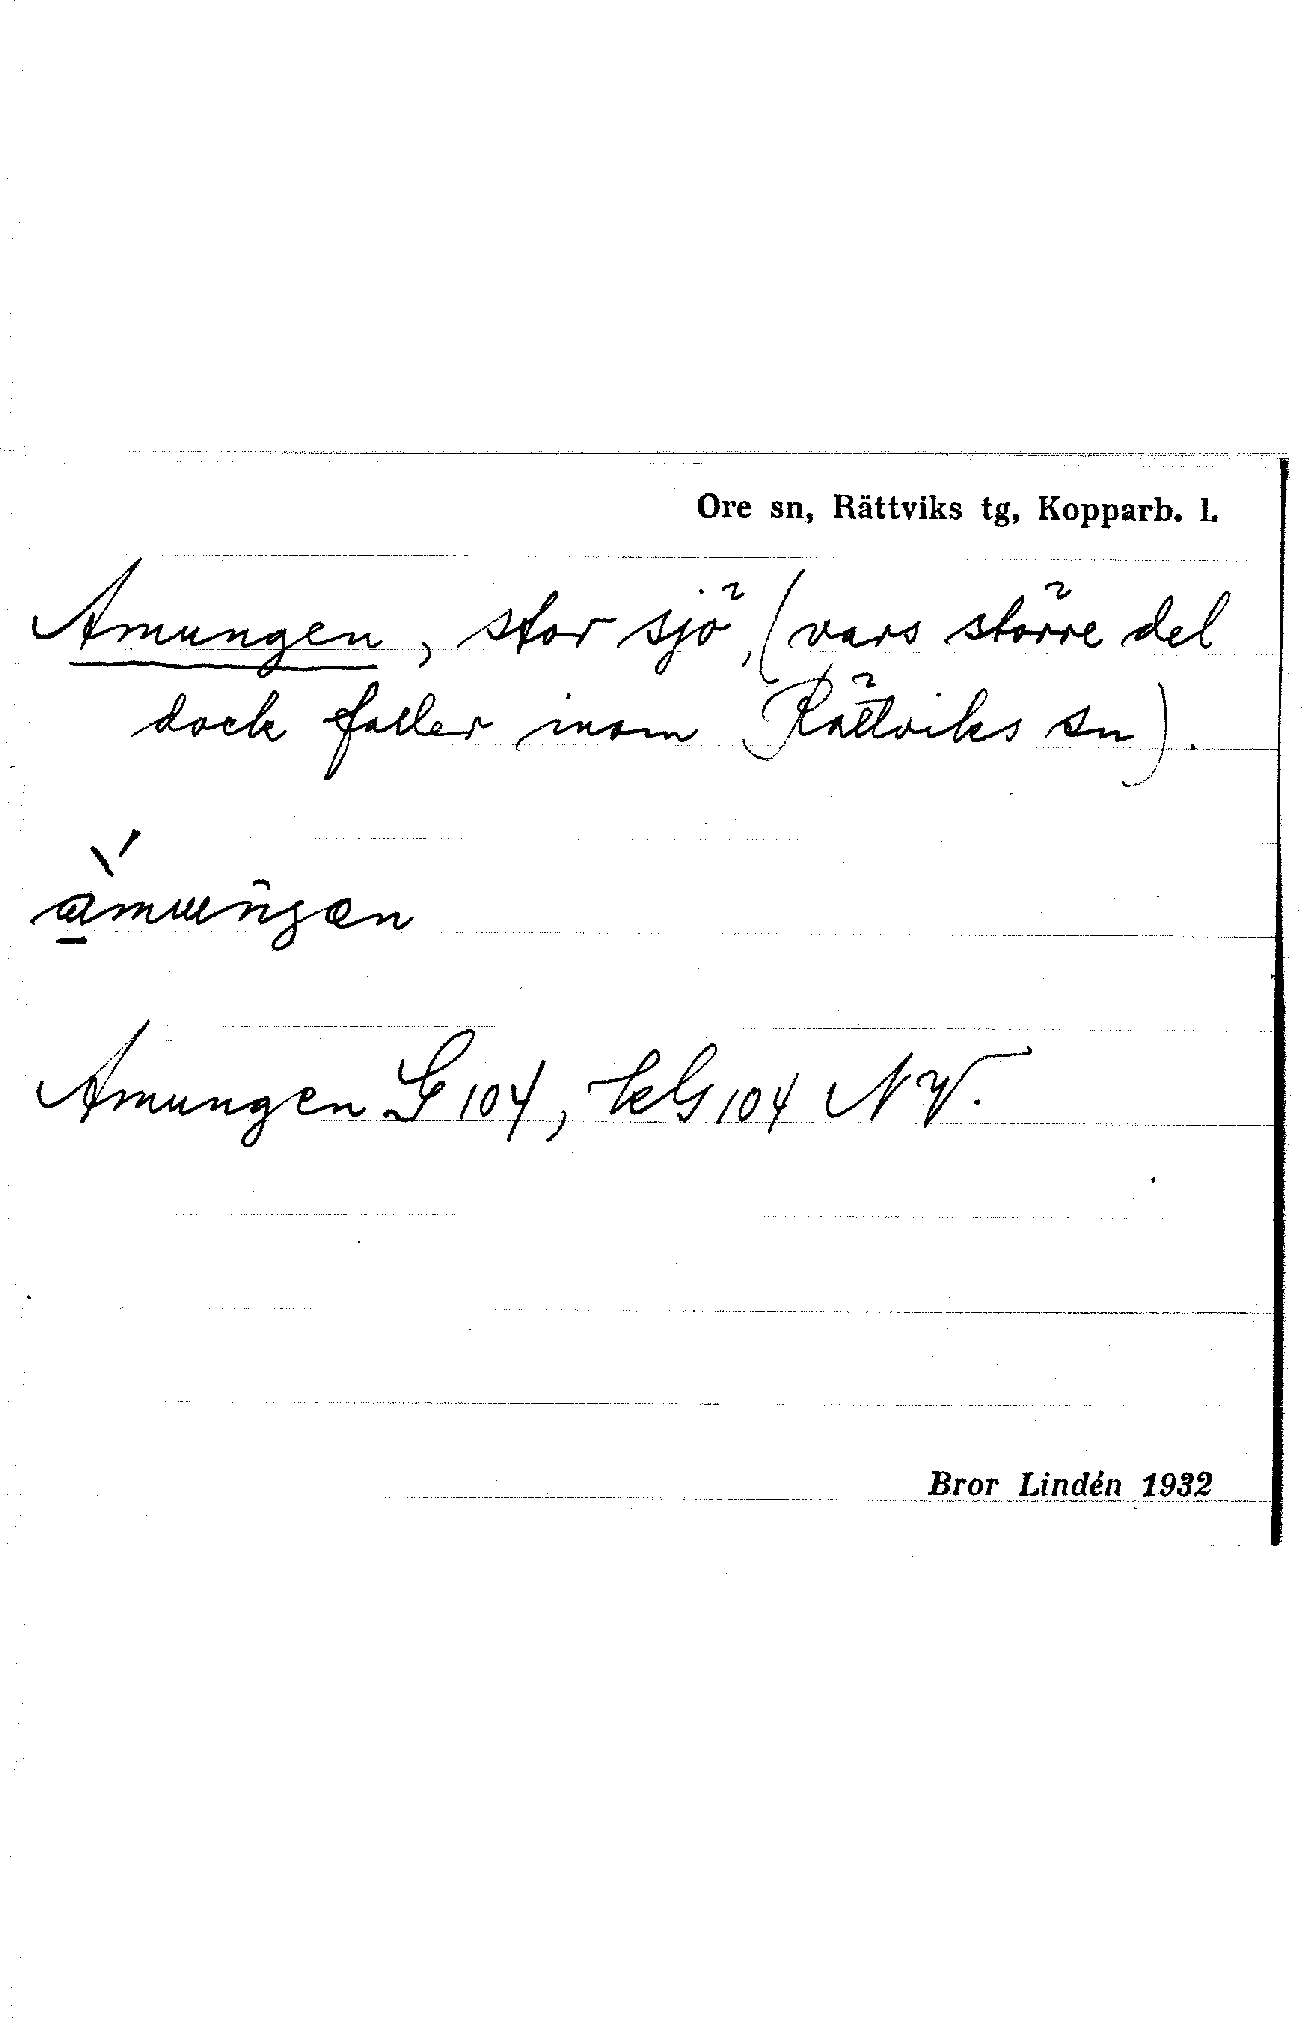 Ore sn, Rättviks tg, Kopparb. l.
Amungen, stor sjö, (vars större del
dock faller inom Rättviks sn).
Amungen G 104, kG 104 NV.
Bror Lindén 1932